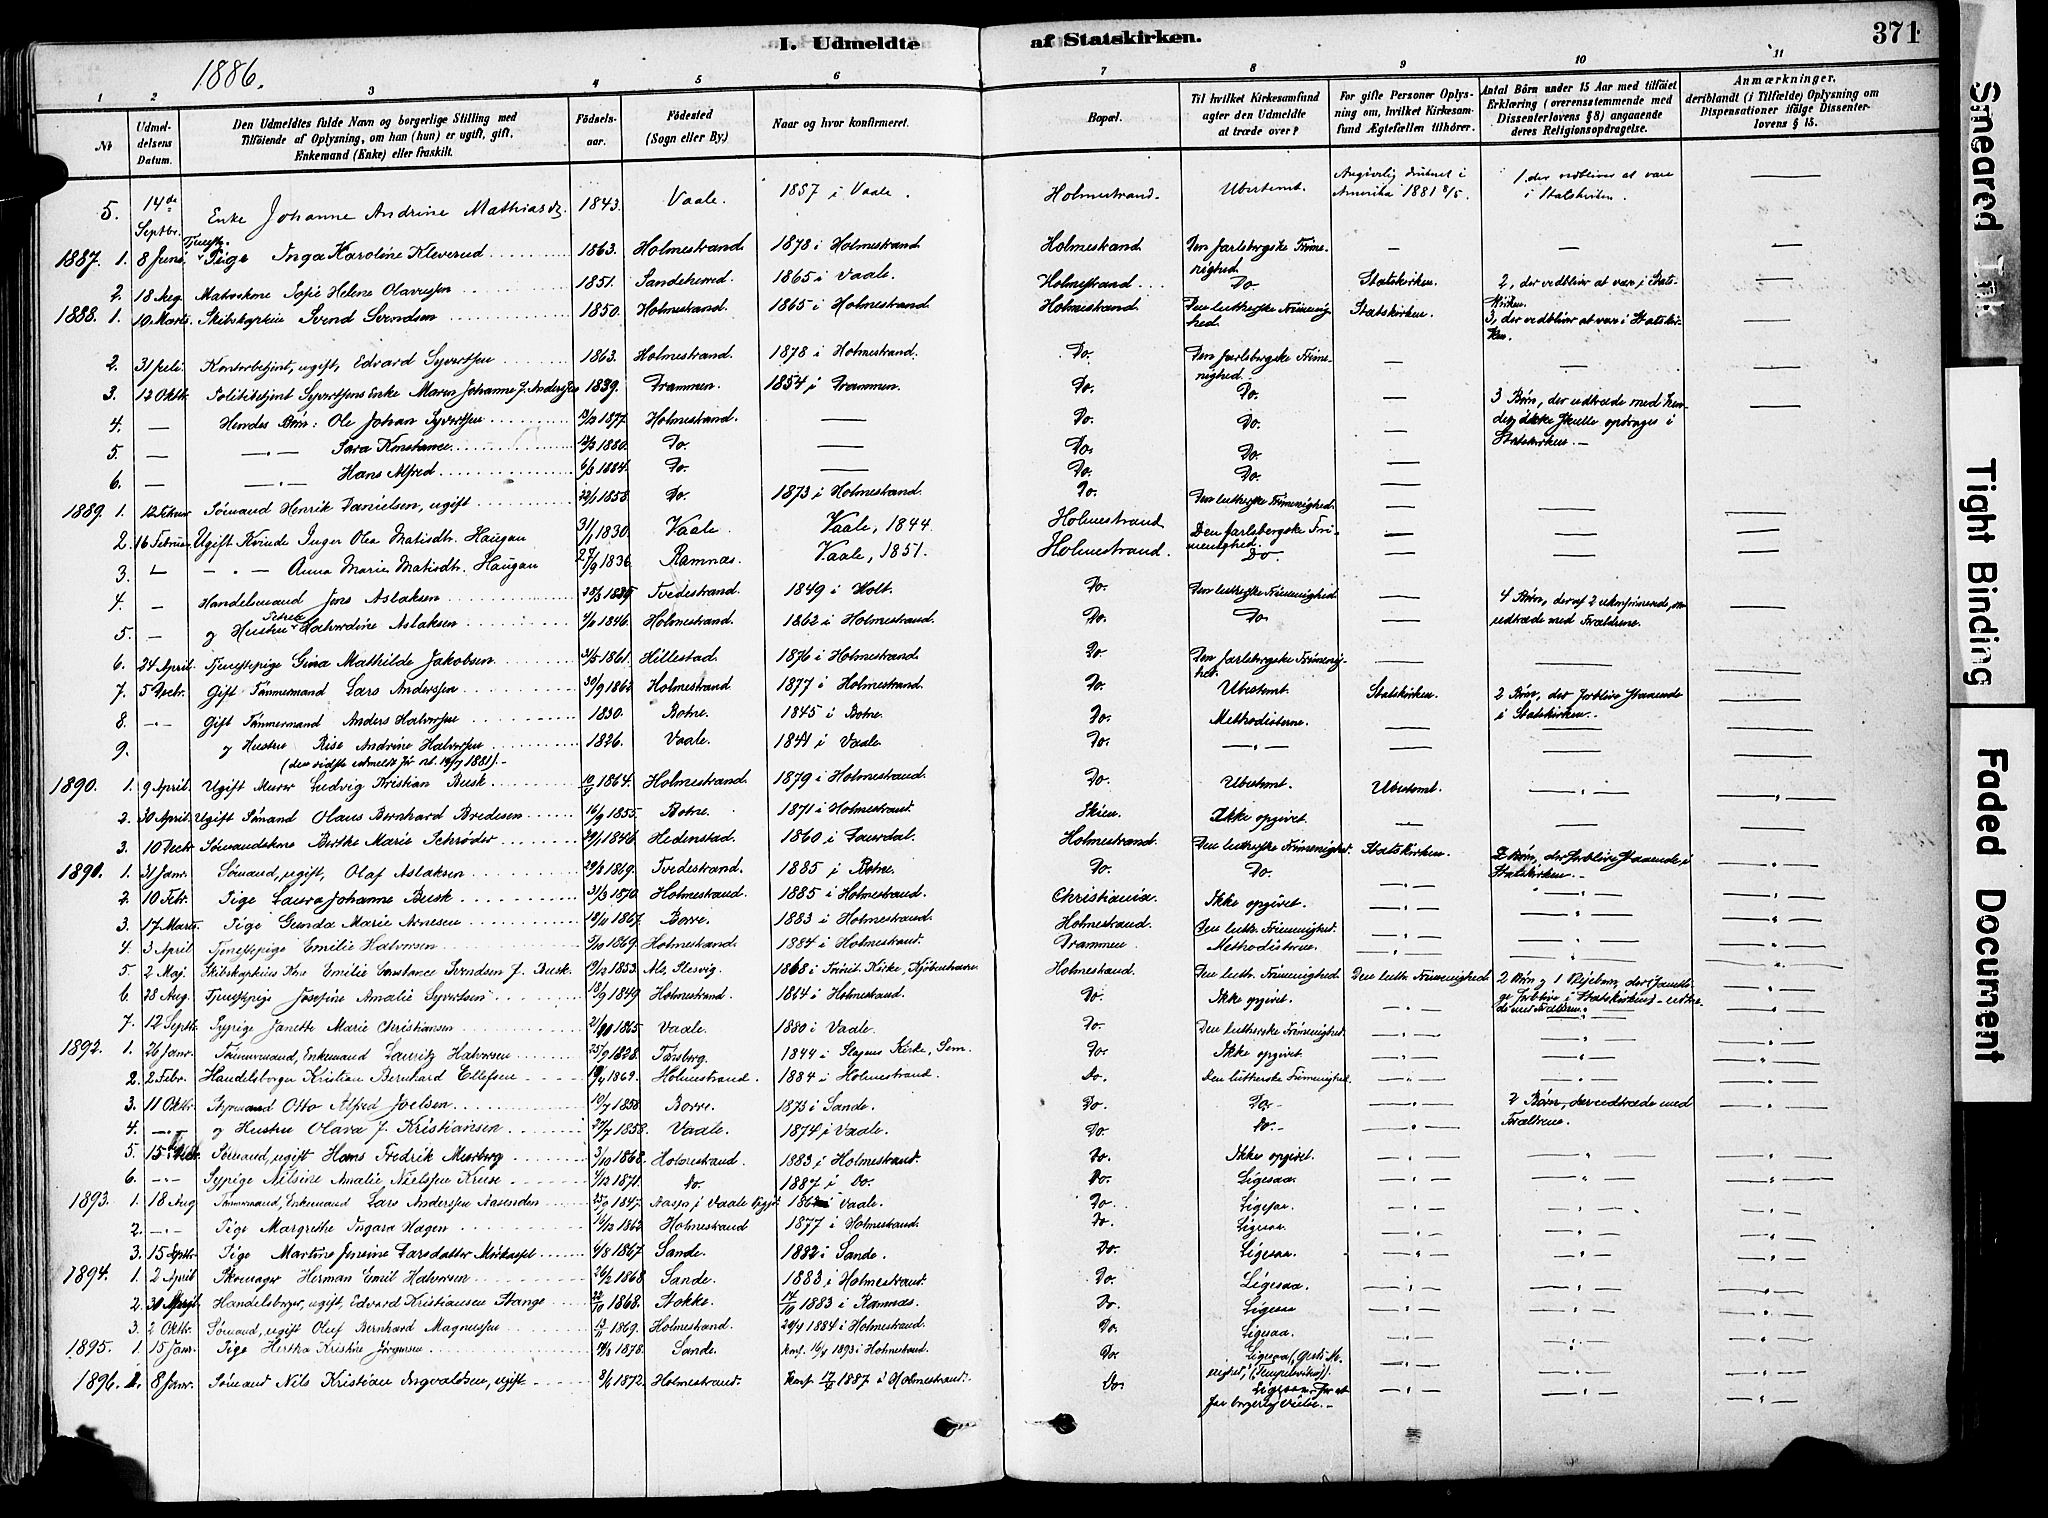 I. Udmeldte af Statskirken.
371
1886.
1 2 3 4 5 6 7 8 9 10 11
No
Udmeldelsens Datum.
Den Udmeldtes fulde Navn og borgerlige Stilling med
Tilføiende af Oplysning, om han (hun) er ugift, gift,
Enkemand (Enke) eller fraskilt.
Fødselsaar.
Fødested
(Sogn eller By.)
Naar og hvor konfirmeret.
Bopæl.
Til hvilket Kirkesamfund
agter den Udmeldte
at træde over?
For gifte Personer Oplys-
ning om, hvilket Kirkesam-
fund Ægtefællen tilhører.
Antal Børn under 15 Aar med tilføiet
Erklæring (overensstemmende med
Dissenterlovens § 8) angaaende
deres Religionsopdragelse.
Anmærkninger,
deriblandt (i Tilfælde) Oplysning om
Dispensationer ifølge Dissenter-
lovens § 15.
5. 14de Septbr. Enke Johanne Andrine Mathiasdr. 1843. Vaale. 1857 i Vaale. Holmestrand. Ubestemt. Angivelig druknet i Amerika 1881 1. der vedbliver at være i Statskirken. —
1887. 1. 8 Juni Tjenestepige Inga Karoline Kleverud 1863. Holmestrand. 1878 i Holmestrand Holmestrand Den Jarlsbergske Frimenighed. — — —
2. 18 Aug. Matroskone Sofie Helene Olavessen 1851. Sandeherred 1865 i Vaale. Holmestrand Do. Statskirken. 2, der vedbliver at være i Statskirken. —
1888. 1. 10 Marts. Skibskaptein Svend Svendsen 1850. Holmestrand. 1865 i Holmestrand Holmestrand Den lutherske Frimenighed. Statskirken. 3, der vedbliver at være i Statskirken. —
2. 31 Juli. Kontorbetjent, ugift, Edvard Syvertsen 1863. Holmestrand. 1878 i Holmestrand. Do. Den Jarlsbergske Frimenighed. — — —
3. 12 Oktbr. Politibetjent Syvertsens Enke Maren Johanne f. Anderssen 1839. Drammen. 1854 i Drammen. Do. Do. — 3 Børn, der udtræde med hende, ikke skulle opdrages i Statskirken. — —
4. — Hendes Børn: Ole Johan Syvertsen 1877. Holmestrand. — Do. Do. —
5. — Sara Konstance 1880. Do. — Do. Do. —
6. — Hans Alfred 1884. Do. — Do. Do. —
1889. 1. 12 Februar Sømand Henrik Danielsen, ugift 22/1 1858. Do. 1873 i Holmestrand. Do. Den lutherske Frimenighed. — — —
2. 16 Februar Ugift Kvinde Inger Olea Matisdtr. Haugan 31/1 1830. Vaale. Vaale, 1844. Holmestrand Den Jarlsbergske Frimenighed. — — —
3. — Anna Marie Matisdtr. Haugan 27/9 1836. Ramnæs. Vaale, 1851. Holmestrand. Do. — — —
4. — Handelsmand Jens Aslaksen Tvedestrand 1849 i Holt. Do. Den lutherske Frimenighed. — 4 Børn, deraf 2 ukonfirmerede, som udtræde med Forældrene. —
5. — og Hustru Petrea Halvardine Aslaksen 1846. Holmestrand. 1862 i Holmestrand. Do. Do. — —
6. 24 April. Tjenestepige Gina Mathilde Jakobsen 31/5 1861. Hillestad. 1876 i Holmestrand. Do Den Jarlsbergske Frimenighed. — — —
7. 5 Decbr. Gift Tømmermand Lars Anderssen 30/9 1862 Holmestrand 1877 i Holmestrand. Do. Ubestemt. Statskirken. 2 Børn, der forblive staaende i Statskirken. —
8. Gift Tømmermand Anders Halvorsen 1830. Botne. 1845 i Botne. Do. Methodisterne. — — —
9. og Hustru Rise Andrine Halvorsen 1826. Vaale. 1841 i Vaale. Do. — — — —
(den sidste udmeldt før 1881).
1890. 1. 9 April. Ugift Murer Ludvig Kristian Busk 1864. Holmestrand. 1879 i Holmestrand. Do. Ubestemt. Ubestemt. — —
2. 30 April. Ugift Sømand Olaus Bernhard Bredesen 16/9 1855. Botne. 1871 i Holmestrand. Skien. Ikke opgivet. — — —
3. 10 Decbr Sømandskone Berthe Marie Schrøder 29/1 1846. Hedenstad. 1860 i Laurdal. Holmestrand. Den lutherske Frimenighed. Statskirken. 2 Børn, der forblive staaende i Statskirken. —
1891. 1. 31 Janr. Sømand, ugift, Olaf Aslaksen 1869. Tvedestrand. 1885 i Botne. Do. Do. — — —
2. 10 Febr. Pige Laura Johanne Busk 31/3 1870. Holmestrand. 1885 i Holmestrand. Christiania. Ikke opgivet. — — —
3. 17 Marts. Pige Gunda Marie Arnesen 1867. Borre. 1883 i Holmestrand. Holmestrand. Den luth. Frimenighed. — — —
4. 3 April Tjenestepige Emilie Halvorsen 5/10 1869. Holmestrand. 1884 i Holmestrand. Drammen. Methodisterne. — — —
5. 2 Maj. Skibskapteins Kone Emilie Constance Svendsen f. Busk. 1853. Als, Slesvig. 1868 i Trinit. Kirke, Kjøbenhavn. Holmestrand. Den luth. Frimenighed. Den luth. Frimenighed. 2 Børn og 1 Plejebarn, forblive i Statskirken —
6. 28 Aug. Tjenestepige Josefine Amalie Syvertsen 18/9 1849 Holmestrand. 1864 i Holmestrand. Do. Ikke opgivet. — — —
7. 12 Septb. Sypige Janette Marie Christiansen 1865 Vaale. 1880 i Vaale. Do. Den lutherske Frimenighed. — — —
1892. 1. 26 Janr. Tømmermand, Enkemand Lauritz Halvorsen 25/9 1828. Tønsberg. 1844 i Slagens Kirke, Sem. Do. Ikke opgivet. — — —
2. 2 Febr. Handelsborger Kristian Bernhard Ellefsen 1869. Holmestrand. 1884 i Holmestrand. Do. Den lutherske Frimenighed. — — —
3. 11 Oktbr. Styrmand Otto Alfred Joelsen 10/7 1858. Borre. 1873 i Sande. Do. Do. — 2 Børn, der udtræde med Forældrene. —
4. — og Hustru Olava f. Kristiansen 27/7 1858. Vaale. 1874 i Vaale. Do. Do. — —
5. 15 Sømand, ugift Hans Fredrik Murberg 3/10 1868. Holmestrand. 1883 i Holmestrand. Do. Ikke opgivet. — — —
6. Sypige Nilsine Amalie Nielsen Kruse 1/12 1871. Do. 1887 i Do. Do. Ligesaa. — — —
1893. 1. 18 Aug Tømmermand, Enkemand Lars Anderssen Aasenden 25/9 1847. i Vaale 1862 i Vaale. Do. Ligesaa. — — —
2. Pige Margrethe Ingara Hagen 1862 Holmestrand 1877 i Holmestrand. Do. Ligesaa. — — —
3. 15 Septbr. Pige Martine Josine Larsdatter 4/8 1867. Sande. 1882 i Sande. Do. Ligesaa. — — —
1894. 1. 2 April Skomager Herman Emil Halvorsen 26/2 1868. Sande. 1883 i Holmestrand. Do. Ligesaa. — — —
2. 30 Handelsborger, ugift, Edvard Kristiansen Stange 22/10 1868. Stokke. 14/10 1883 i Ramnæs. Do. Ligesaa — — —
3. 2 Oktbr. Sømand, ugift Oluf Bernhard Magnussen 1869. Holmestrand. 1884 i Holmestrand. Do. Ligesaa. — — —
1895. 1. 15 Janr. Pige Hertha Kristine Jørgensen 1878. Sande. konf. 1893 i Holmestrand. Do. Ligesaa — — —
1896. 1. 8 Janr. Sømand Nils Kristian Ingvaldsen, ugift 1872. Holmestrand. konf. 1887 i Holmestrand. Do. Ligesaa, for at faa borgerlig Vielse. — — —
Smeared Ink
Tight Binding
Faded Document